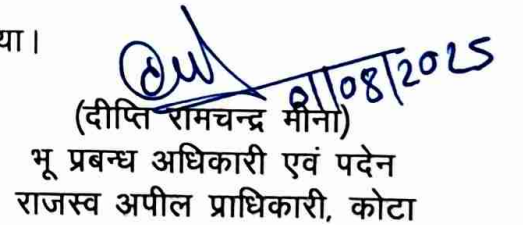 या।
01/08/2025
(दीप्ति रामचन्द्र मीना)
भू प्रबन्ध अधिकारी एवं पदेन
राजस्व अपील प्राधिकारी, कोटा